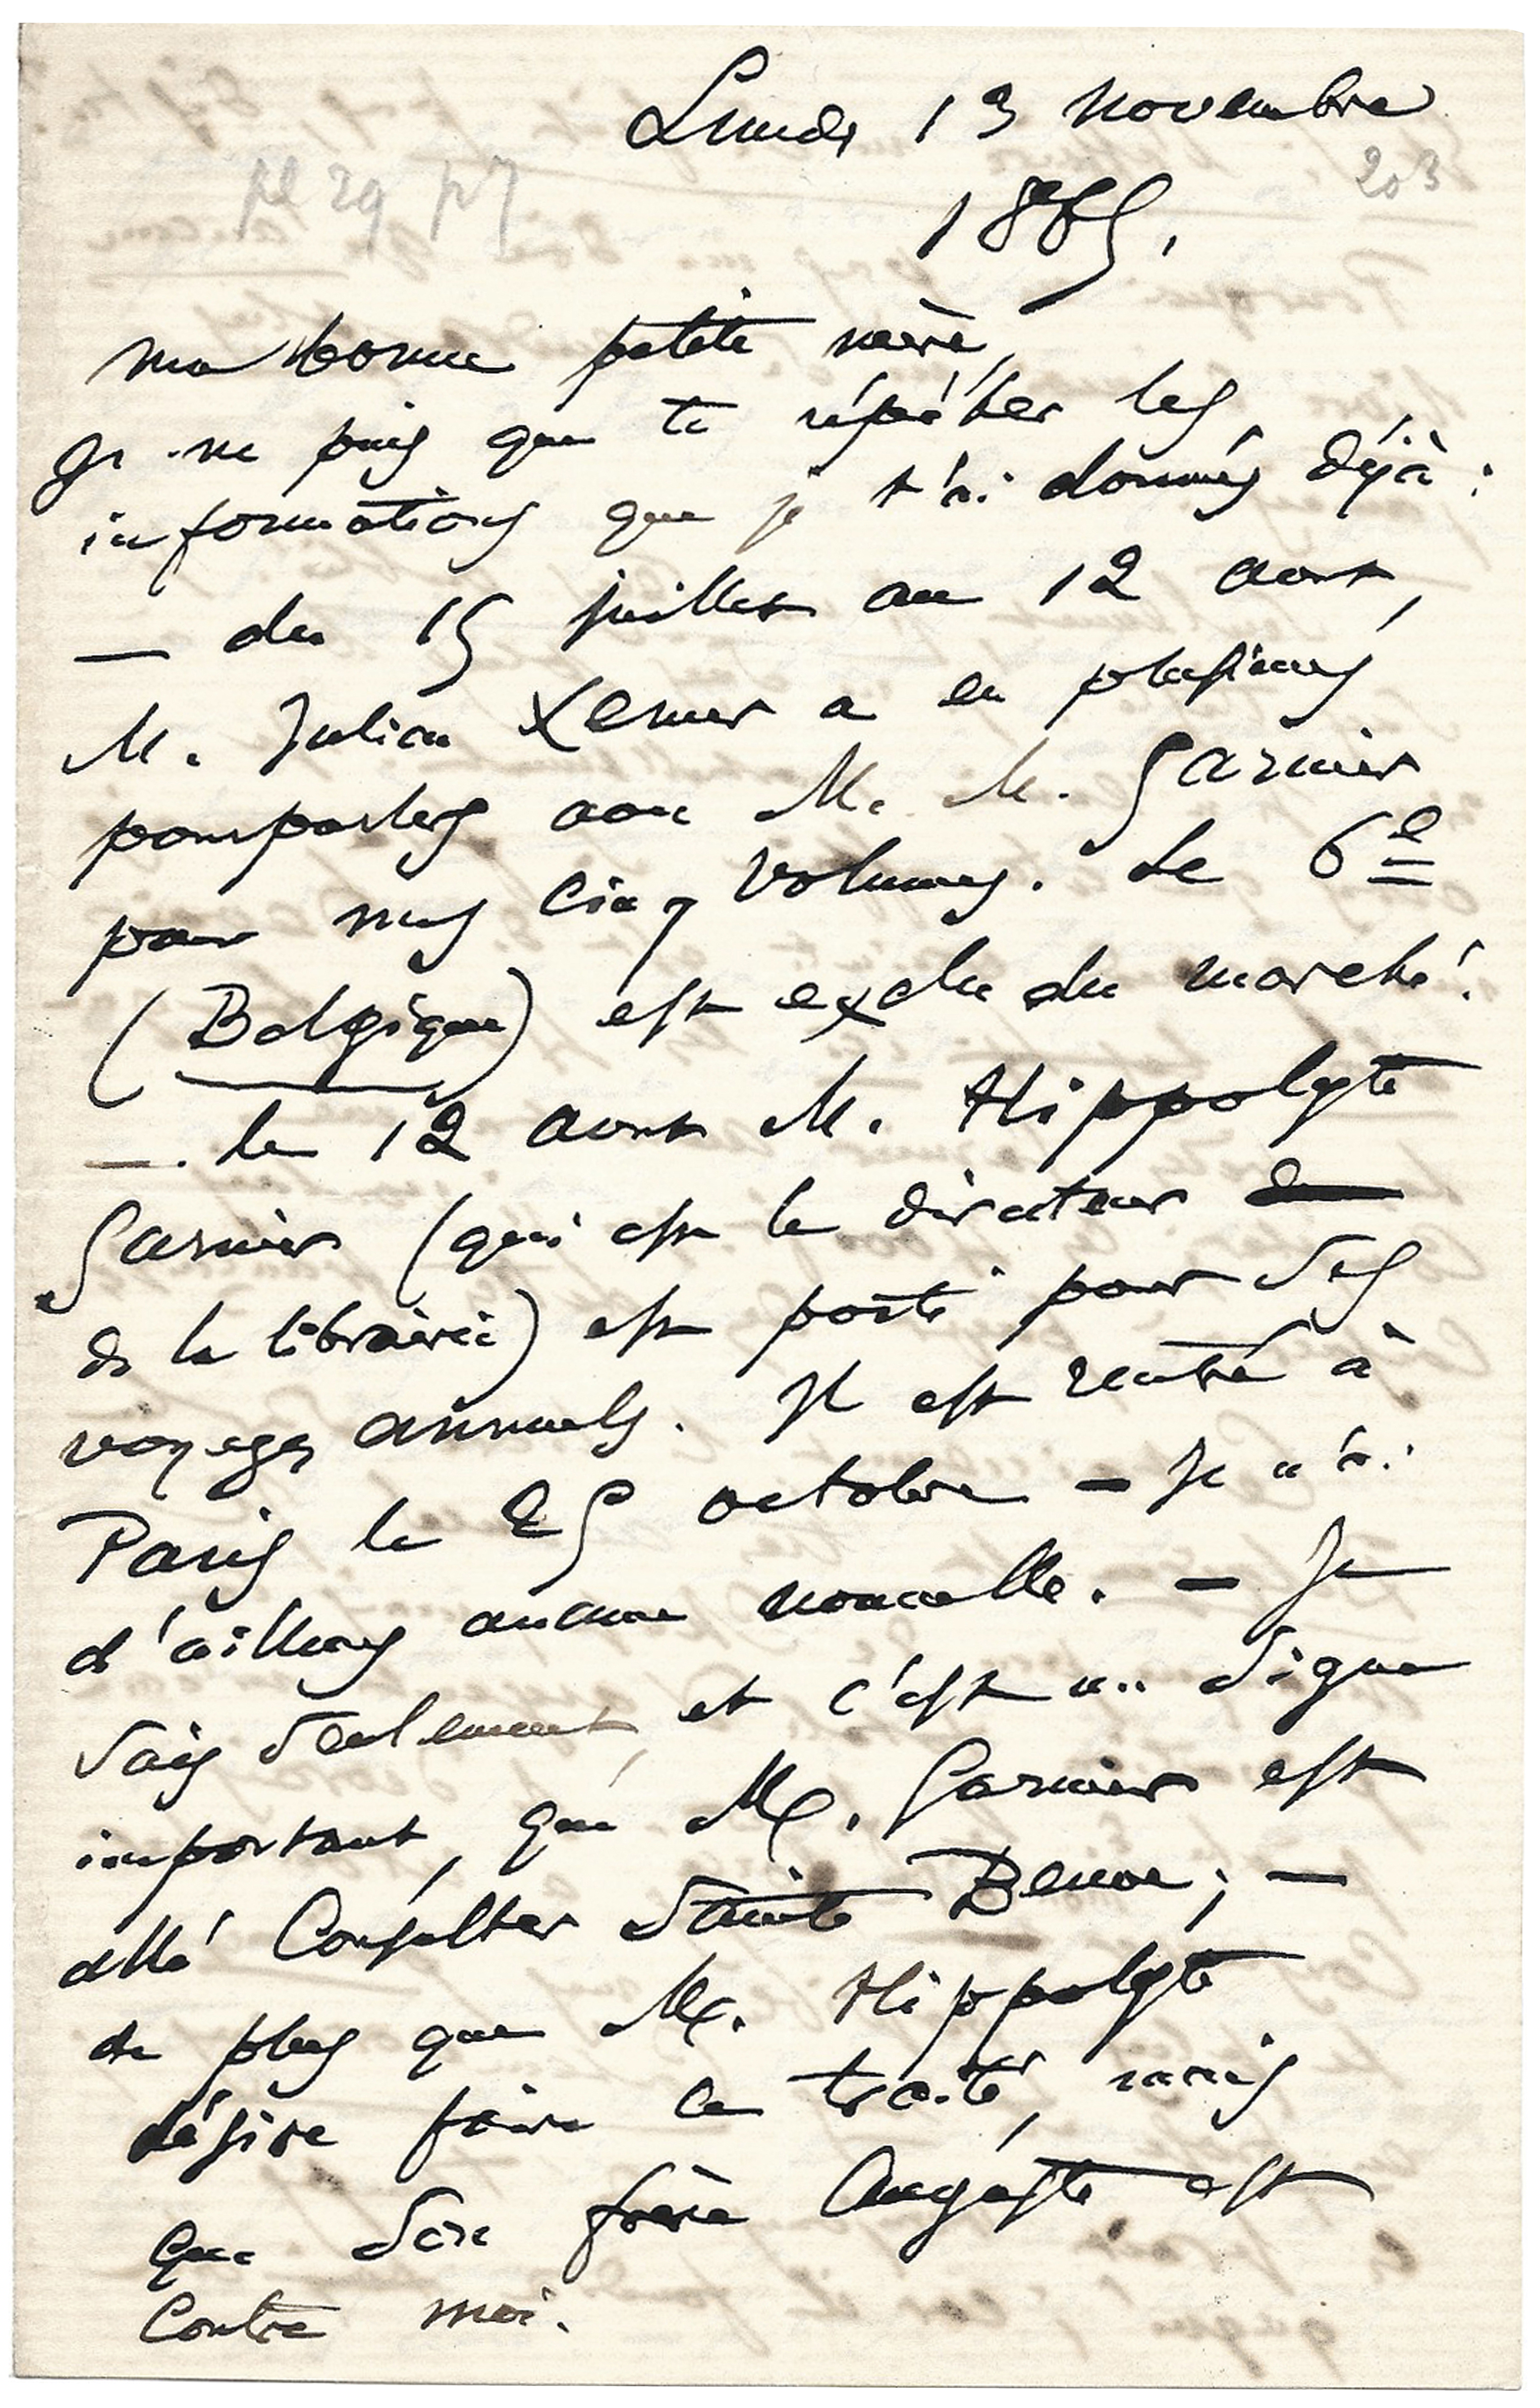 Lundi 13 novembre
203
1865.
pl 29 p7
ma bonne petite mère,
Je ne puis que te répéter les
informations que je t'ai données déjà :
— du 15 juillet au 12 aout,
M. Julien Lemer a eu plusieurs
pourparlers avec M. M. Garnier
pour mes cinq volumes. Le 6e
(Belgique) est exclu du marché.
— le 12 aout M. Hippolyte
Garnier (qui est le directeur
de la librairie) est parti pour ses
voyages annuels. Il est rentré à
Paris le 25 octobre — Je n'ai
d'ailleurs aucune nouvelle. — Je
sais seulement, et c'est un signe
important, que M. Garnier est
allé Consulter Sainte Beuve ; —
de plus que M. Hippolyte
désire faire ce traité, mais
que son frère Auguste est
Contre moi.